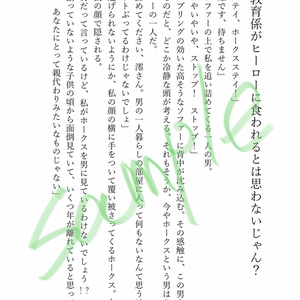 教育係がヒーローに食われるとは思わないじゃん？
テイ、ホークスステイ！」
です、待ちません」
ファーの上で私を追い詰めてくる一人の男。
やいやいや、ストップ！ ストップ！」
プリングの効いた高そうなソファーに背中が沈み込む。その感触に、この男
のだと、どこか冷静な頭が考える。それもそうか、今やホークスという男は
ーの一人だ。
てください、澪さん。男の一人暮らしの部屋に入って何もないなんて思う
トぶってるわけじゃないでしょ」
げられないようにか、私の顔の横に手をついて覆い被さってくるホークス。
の顔で隠される。
だって言っているけど、私がホークスを男に見ているわけないでしょう！？
っていないような子供の頃から面倒見ていて、いくつ年が離れていると思っ
あなたにとって親代わりみたいなものじゃない」
Sample